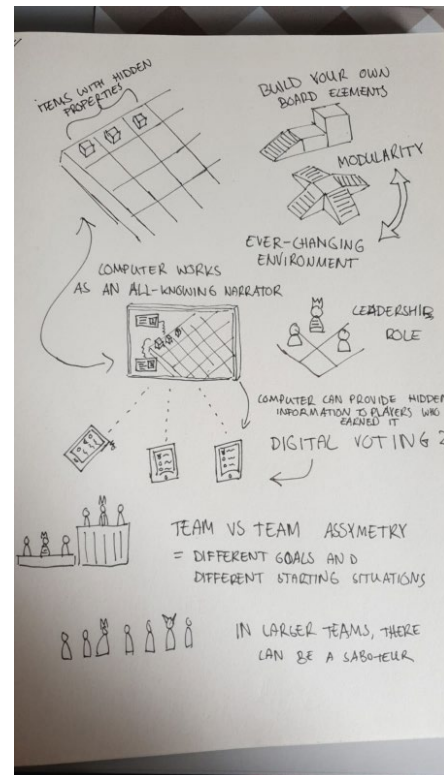 ITEMS WITH HIDDEN
PROPERTIES
BUILD YOUR OWN
BOARD ELEMENTS
MODULARITY
EVER-CHANGING
ENVIRONMENT
COMPUTER WORKS
AS AN ALL-KNOWING NARRATOR
LEADERSHIP
ROLE
COMPUTER CAN PROVIDE HIDDEN
INFORMATION TO PLAYERS WHO
EARNED IT
DIGITAL VOTING
TEAM VS TEAM ASSYMETRY
= DIFFERENT GOALS AND
DIFFERENT STARTING SITUATIONS
IN LARGER TEAMS, THERE
CAN BE A SABOTEUR